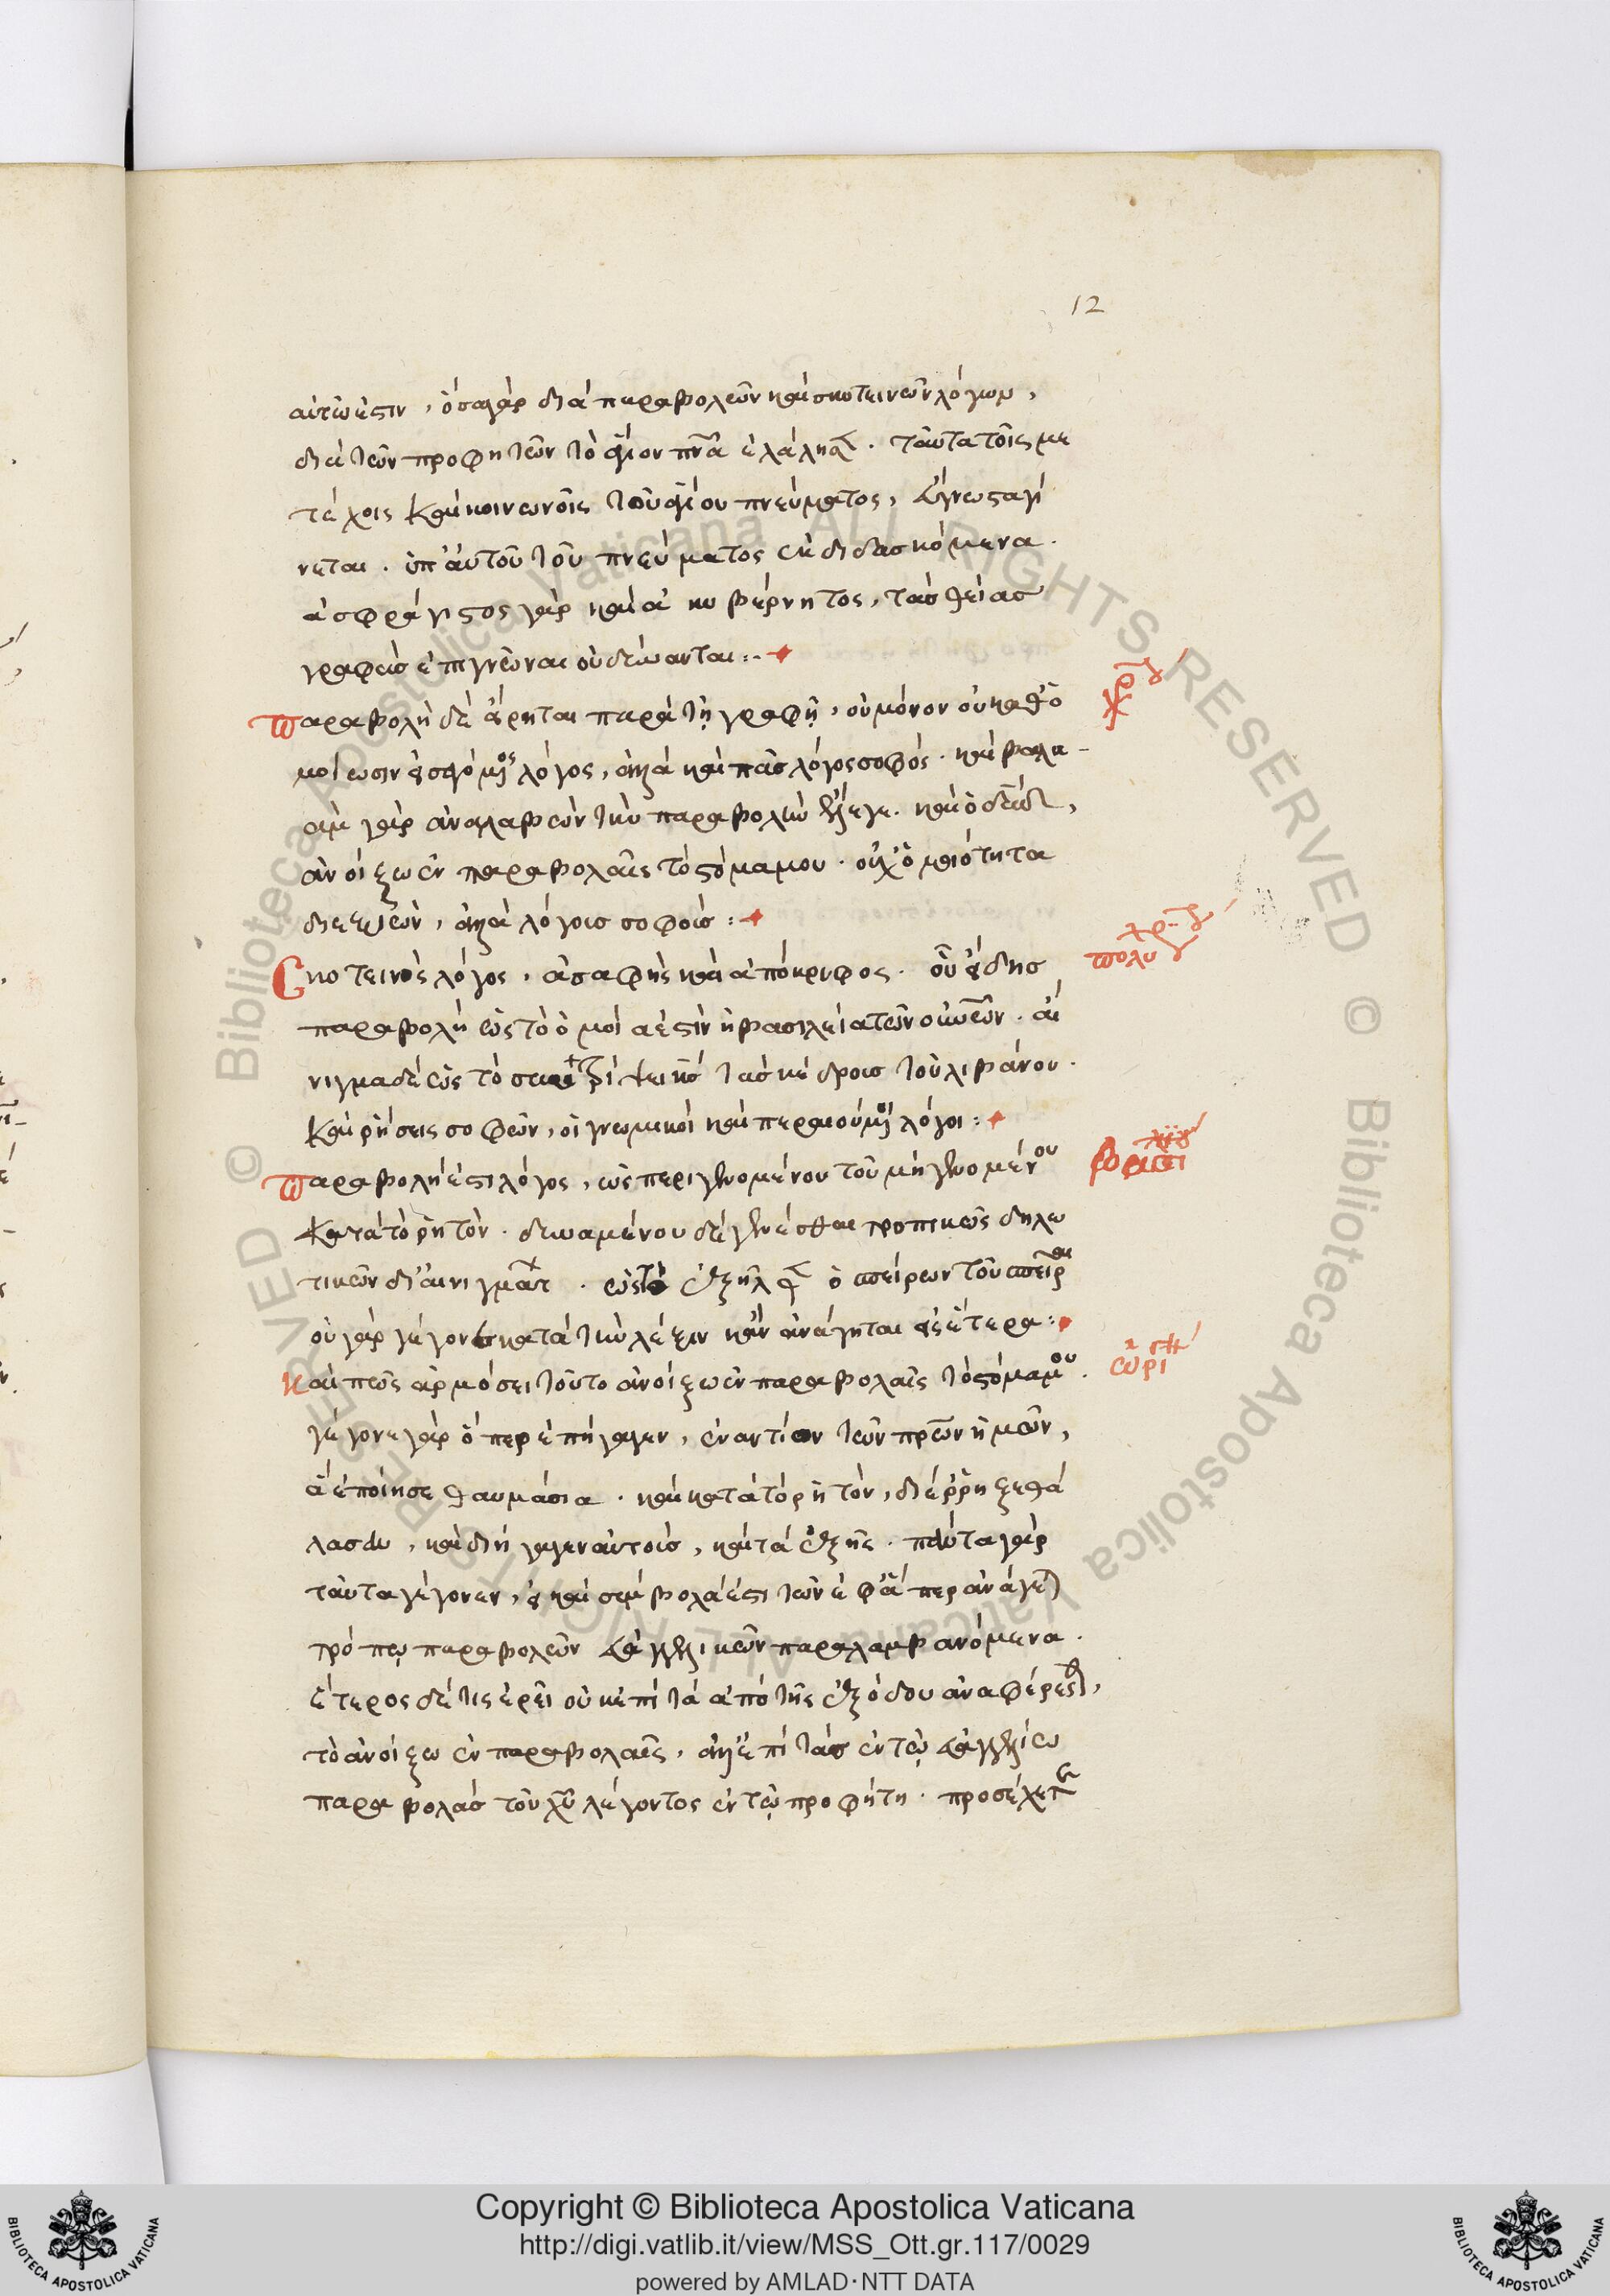 12
αὐτῶ ἐστιν, ὅσα γὰρ διὰ παραβολῶν καὶ σκοτεινῶν λόγων,
διὰ τῶν προφητῶν τὸ ἅγιον πνα ἐλάλησε. ταῦτα τοῖς με
τόχοις καὶ κοινωνοῖς τοῦ ἁγίου πνεύματος, εὔγνωστα γί
νεται. ὑπ' αὐτοῦ τοῦ πνεύματος ἐκδιδασκόμενα.
ἀσφράγιστος γὰρ καὶ ἀκυβέρνητος, τὰς θείας
γραφὰς ἐπιγνῶναι οὐ δύνανται:
παραβολὴ δὲ εἴρηται παρὰ τῇ γραφῇ, οὐ μόνον οὐ καθ' ὁ
μοίωσιν εἰσαγόμενος λόγος, ἀλλὰ καὶ πᾶς λόγος σοφός. καὶ βαλα
ὰμ γὰρ ἀναλαβὼν τὴν παραβολὴν ἔλεγε. καὶ ὁ δαδ,
ἀνοίξω ἐν παραβολαῖς τὸ στόμα μου. οὐχ' ὁμοιότητα
διεξιὼν, ἀλλὰ λόγοις σοφοῖς:
Σκοτεινὸς λόγος, ἀσαφὴς καὶ ἀπόκρυφος. οὗ εἴδης
παραβολὴ ὡς τὸ ὁμοία ἐστὶν ἡ βασιλεία τῶν οὐνῶν. αἴ
νιγμα δὲ ὡς τὸ συντρίψει κς τὰς κέδρους τοῦ λιβάνου.
καὶ ῥήσεις σοφῶν, οἱ γνωμικοὶ καὶ περαιούμενοι λόγοι:
παραβολή ἐστι λόγος, ὡς περὶ γινομένου τοῦ μὴ γινομένου
κατὰ τὸ ῥητόν. δυναμένου δὲ γενέσθαι τροπικῶς δηλω
τικῶν δι' αἰνιγμάτ. ὡς τὸ ἐξῆλθεν ὁ σπείρων τοῦ σπεῖραι
οὐ γὰρ γέγονε κατὰ τὴν λέξιν κἂν ἀνάγηται εἰς ἕτερα:
καὶ πῶς ἁρμόσει τοῦτο ἀνοίξω ἐν παραβολαῖς τὸ στόμα μου.
γέγονε γὰρ ὅπερ ἐπήγαγεν, ἐναντίον τῶν πρων ἡμῶν,
ἃ ἐποίησε θαυμάσια. καὶ κατὰ τὸ ῥητὸν, διέρρηξε θά
λασσαν, καὶ διήγαγεν αὐτοὺς, καὶ τὰ ἑξῆς. πάντα γὰρ
ταῦτα γέγονεν, εἰ καὶ σύμβολά ἐστι τῶν ἐφ' ἅπερ ἀνάγεται
τρόπῳ παραβολῶν εὐαγγελικῶν παραλαμβανόμενα.
ἕτερος δέ τις ἐρεῖ οὐκ ἐπὶ τὰ ἀπὸ τῆς ἐξόδου ἀναφέρεσθαι,
τὸ ἀνοίξω ἐν παραβολαῖς, ἀλλ' ἐπὶ τὰς ἐν τῷ εὐαγγελίω
παραβολὰς τοῦ χυ λέγοντος ἐν τῷ προφήτη. προσέχετε
πολυ
ὠριγ
Copyright © Biblioteca Apostolica Vaticana
http://digi.vatlib.it/view/MSS_Ott.gr.117/0029
powered by AMLAD·NTT DATA
BIBLIOTECA APOSTOLICA VATICANA
BIBLIOTECA APOSTOLICA VATICANA